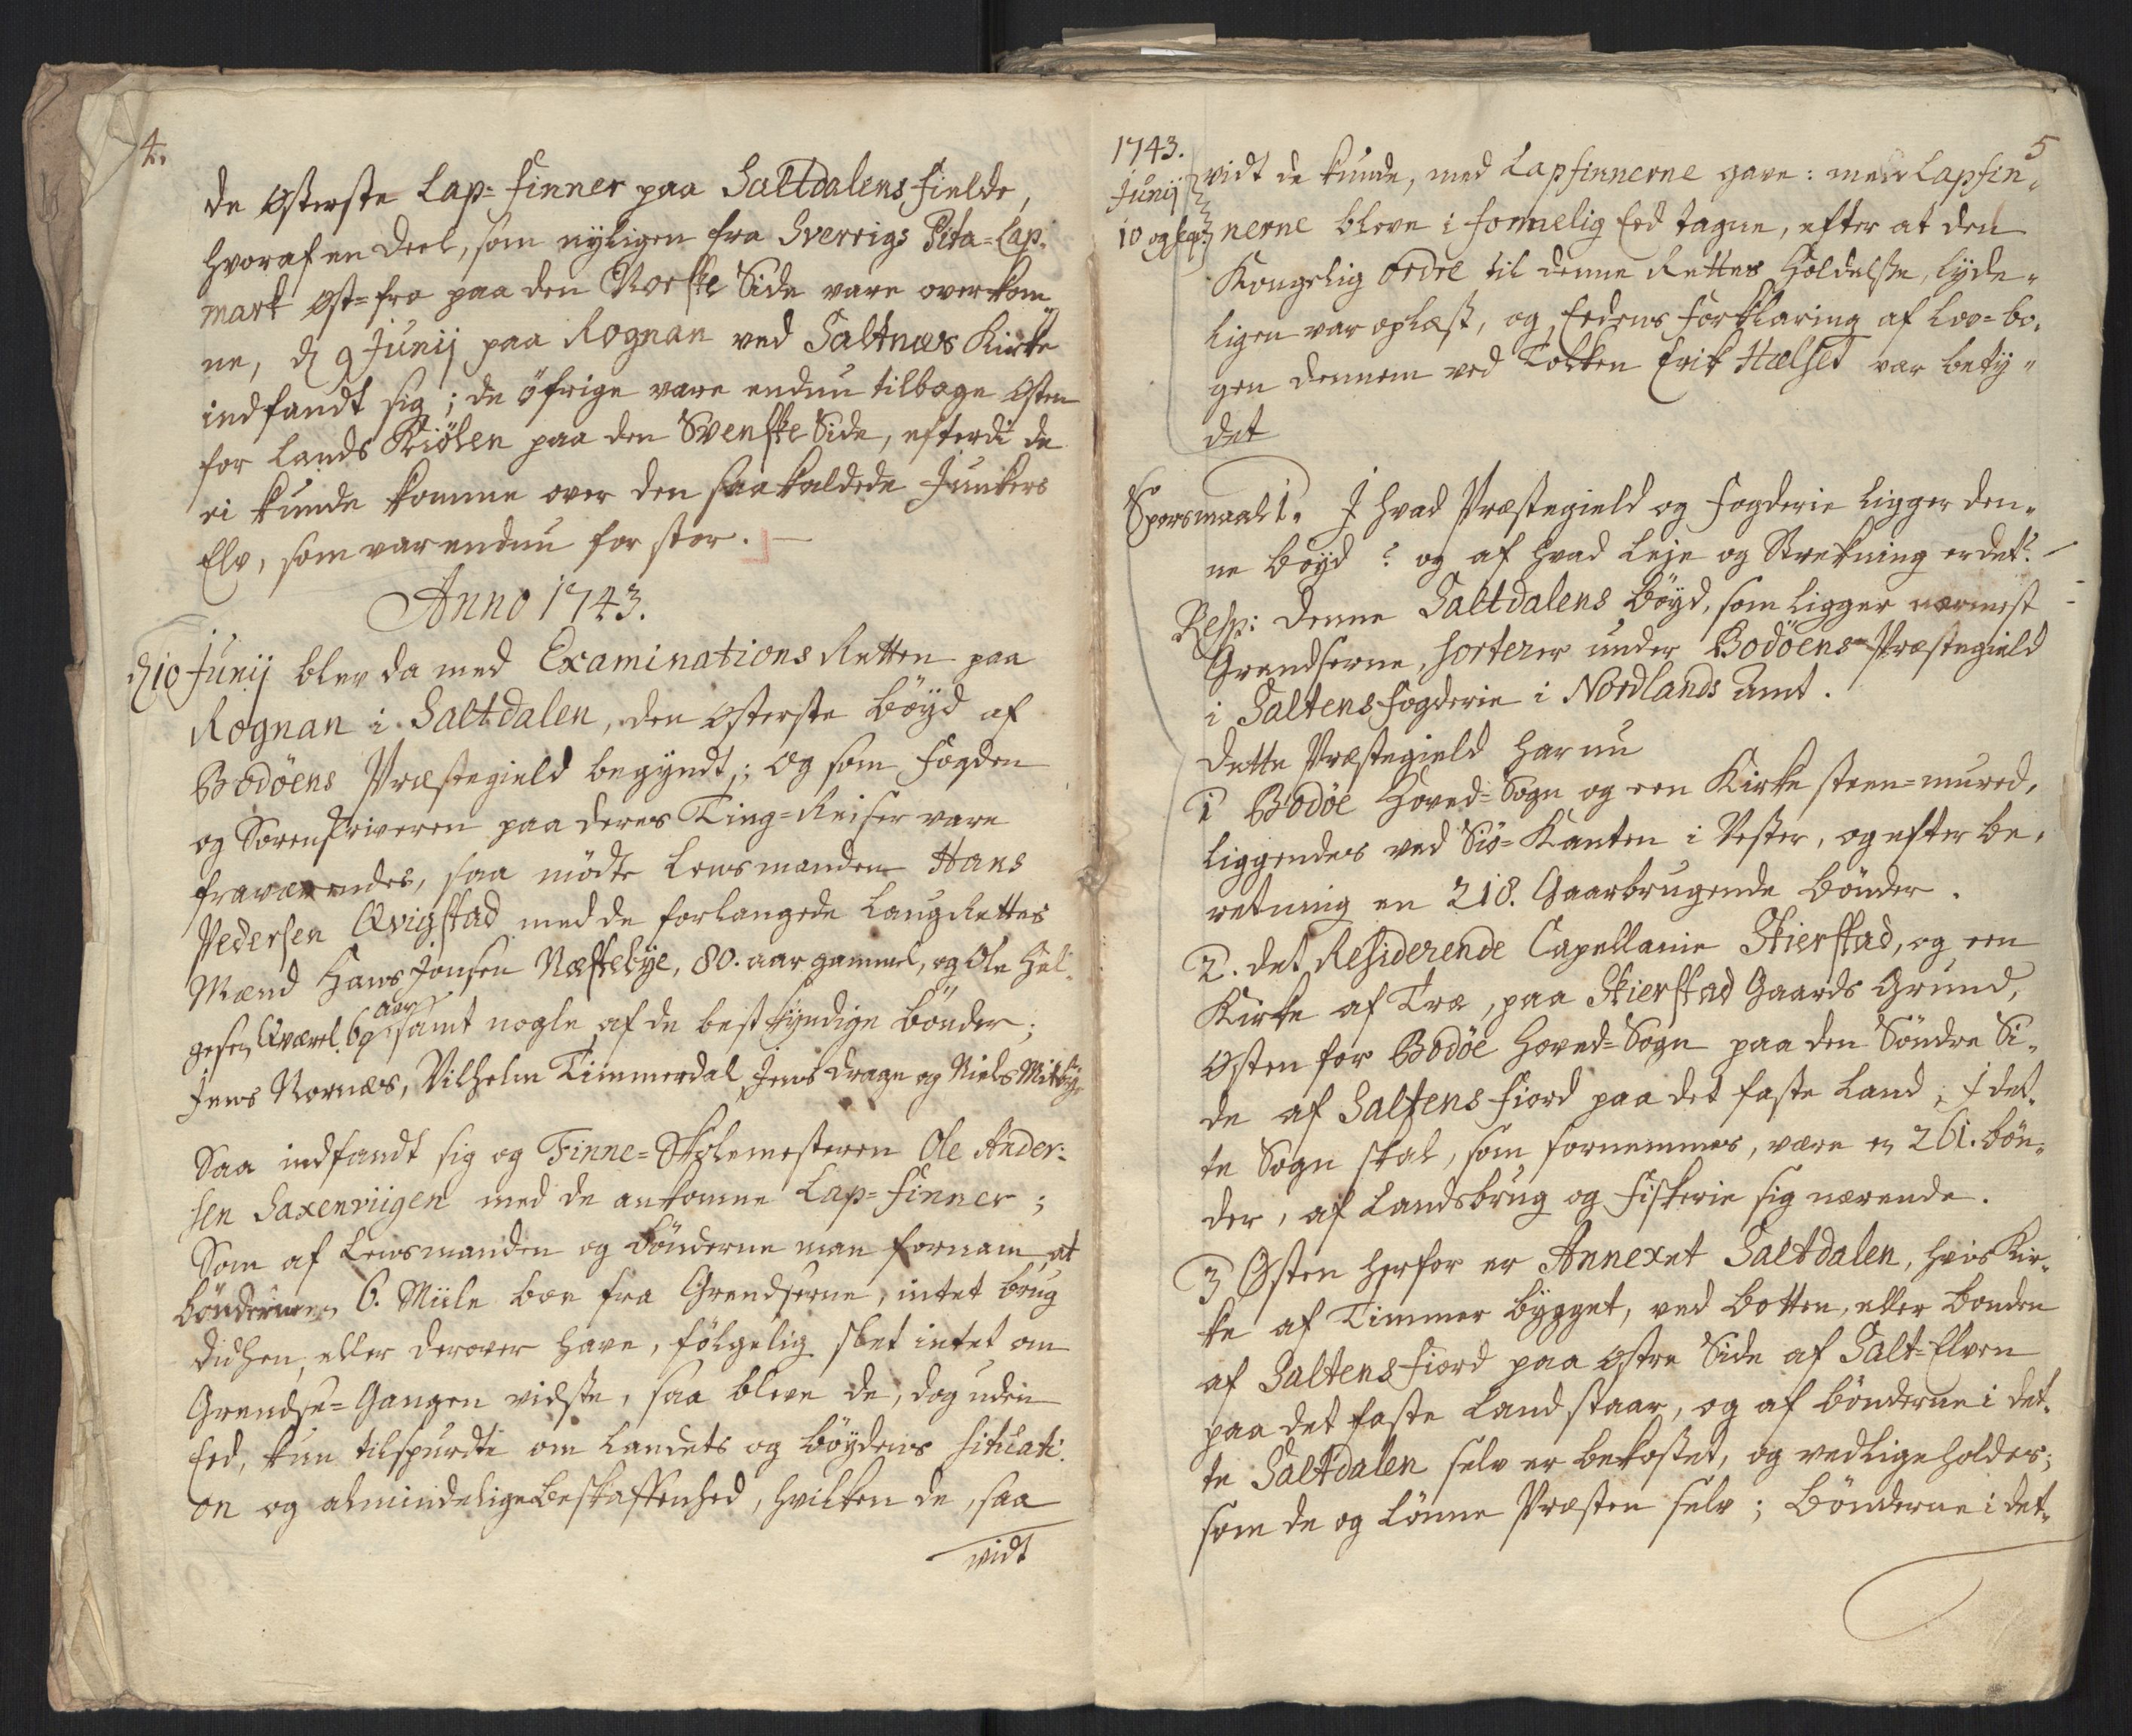 4.
de Østerste Lap-Finner paa Saltdalens Fielde,
hvoraf en Deel, som nyligen fra Sverrigs Pita-Lap-
mark Øst-fra paa den Norske Side vare overkom
ne, d 9 Junij paa Rognan ved Saltnæs Kirke
indfandt sig; de öfrige vare endnu tilbage Østen
for Lands Kiölen paa den Svenske Side, efterdi de
ei kunde komme over den saakaldede Junkers
Elv, som var endnu for stor. —
Anno 1743.
d 10 Junij blev da med Examinations Retten paa
Rognan i Saltdalen, den Østerste böyd af
Bodöens Præstegield begyndt; Og som Fogden
og Sorenskriveren paa deres Ting-Reiser vare
fraværendes, saa mödte Lensmanden Hans
Pedersen Qvigstad med de forlangede Laug Rettes
Mænd Hans Jonsen Næstebye, 80. aar gammel, og Ole Hel-
gesen Qværl. 69 aar samt nogle af de best kyndige bönder;
Jens Nornæs, Vilhelm Timmerdal, Jens Drage og Niels
Saa indfandt sig og Finne-Skolemesteren Ole Ander-
sen Saxenviigen med de ankomne Lap-Finner;
Som af Lensmanden og bönderne man fornam, at
bönderne 6. Miile boe fra Grendserne, intet brug
didhen, eller derover have, fölgelig slet intet om
Grendse-Gangen vidste, saa bleve de, dog uden
Eed, kun tilspurdte om Landets og böydens Situati-
on og almindelige beskaffenhed, hvilken de, saa
vidt
5
1743.
Junij
10 og seqv:
vidt de kunde, med Lapfinnerne gave: men Lapfin-
nerne bleve i formelig Eed tagne, efter at den
Kongelig Ordre til denne Rettes Holdelse, lyde-
ligen var oplæst, og Eedens Forklaring af Lov-bo-
gen dennem ved Tolken Erik Hælset var bety-
det
Spørsmaal 1. I hvad Præstegield og Fogderie ligger den-
ne böyd? og af hvad Leje og Strekning er det?
Resp: Denne Saltdalens böyd, som ligger nærmest
Grendserne, sorterer under Bodöens Præstegield
i Saltens Fogderie i Nordlands Amt.
Dette Præstegield har nu
1 Bodöe Hoved-Sogn og een Kirke steen-mured,
liggendes ved Siö-Kanten i Vester, og efter be-
retning en 218. Gaarbrugende bönder.
2. det Residerende Capellanie Skierstad, og een
Kirke af Træ, paa Skierstad Gaards Grund,
Østen for Bodöe Hoved-Sogn paa den Söndre Si-
de af Saltens Fiord paa det faste Land; I det-
te Sogn skal, som fornemmes, være en 261. bön-
der, af Landsbrug og Fiskerie sig nærende.
3 Østen herfor er Annexet Saltdalen, hvis Kir-
ke af Timmer bygget, ved botten, eller bonden
af Saltens Fiord paa Østre Side af Salt-Elven
paa det faste Land staar, og af bönderne i det-
te Saltdalen selv er bekostet, og vedligeholdes;
som de og lönne Præsten selv; bönderne i det-